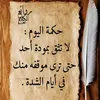 حكمة اليوم :
لا تثق بمودة أحد
حتى ترى موقفه منك
في أيام الشدة .